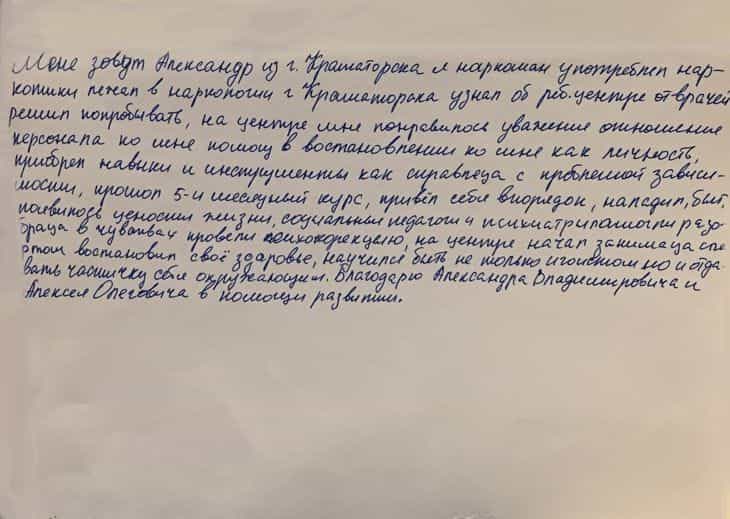 Мене зовут Александр из г. Краматорска я наркоман употреблял нар-
котики лежал в наркологии г Краматорска узнал об реб.центре от врачей
решил попробывать, на центре мне понравилось уважение отношение
персонала ко мне помощ в востановлении ко мне как личность,
приобрел навыки и инструменты как справлеца с проблемой зависи-
мости, прошол 5-и месяцный курс, привёл себя впорядок, наладил, быт,
появились ценности жизни, социальные педагоги и психиатр помогли разо-
браца в чувствах провели психокорекцию, на центре начал занимаца спо
ртом востановил своё здоровье, научился быть не только игоистом но и отда-
вать частичку себя окружающим. Благодарю Александра Владимировича и
Алексея Олеговича в помощи развитии.